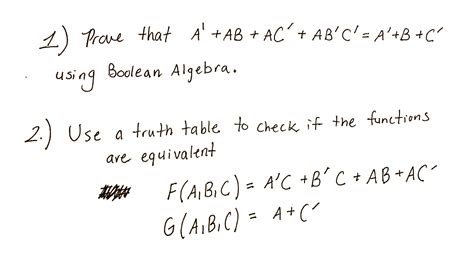 1) Prove that A' + AB + AC' + AB'C' = A' + B + C'
using Boolean Algebra.
2.) Use a truth table to check if the functions
are equivalent
F(A,B,C) = A'C + B'C + AB + AC'
G(A,B,C) = A + C'